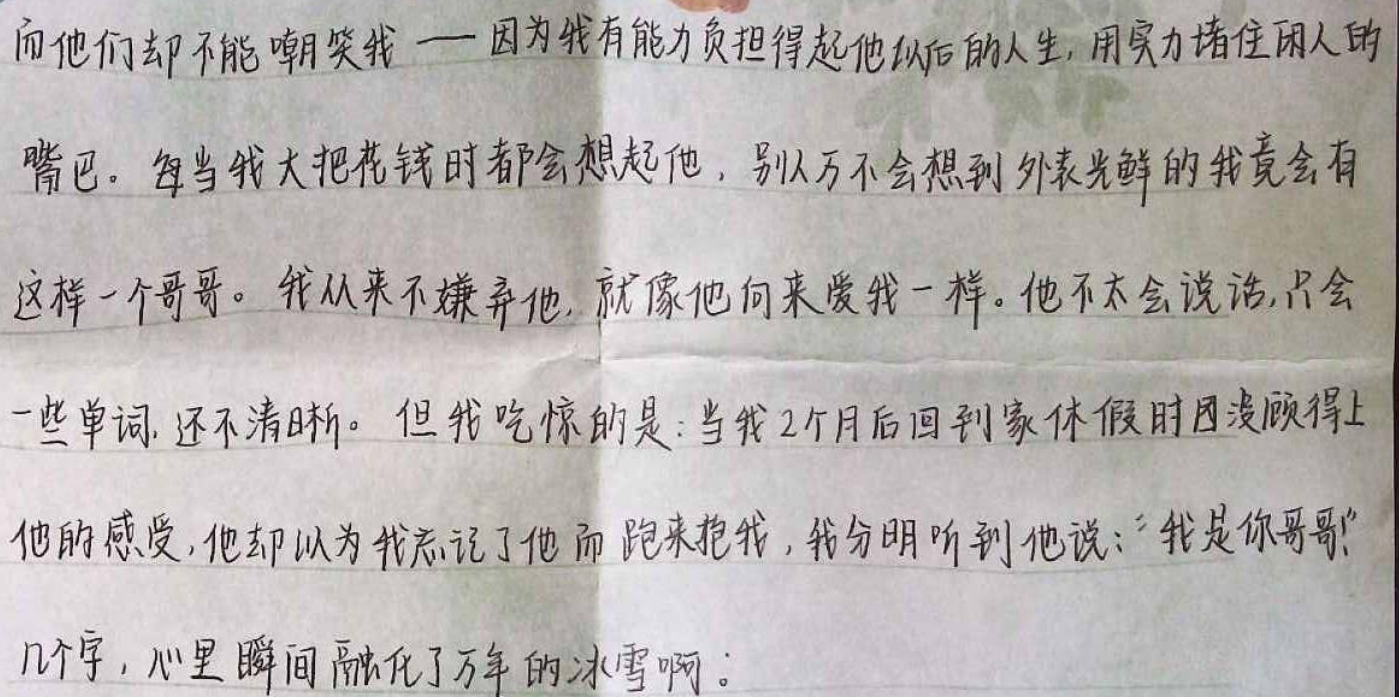 而他们却不能嘲笑我 — 因为我有能力负担得起他以后的人生,用实力堵住闲人的
嘴巴。每当我大把花钱时都会想起他,别人万不会想到外表光鲜的我竟会有
这样一个哥哥。我从来不嫌弃他,就像他向来爱我一样。他不太会说话,只会
一些单词,还不清晰。但我吃惊的是:当我2个月后回到家休假时因没顾得上
他的感受,他却以为我忘记了他而跑来抱我,我分明听到他说:“我是你哥哥!”
几个字,心里瞬间融化了万年的冰雪啊: